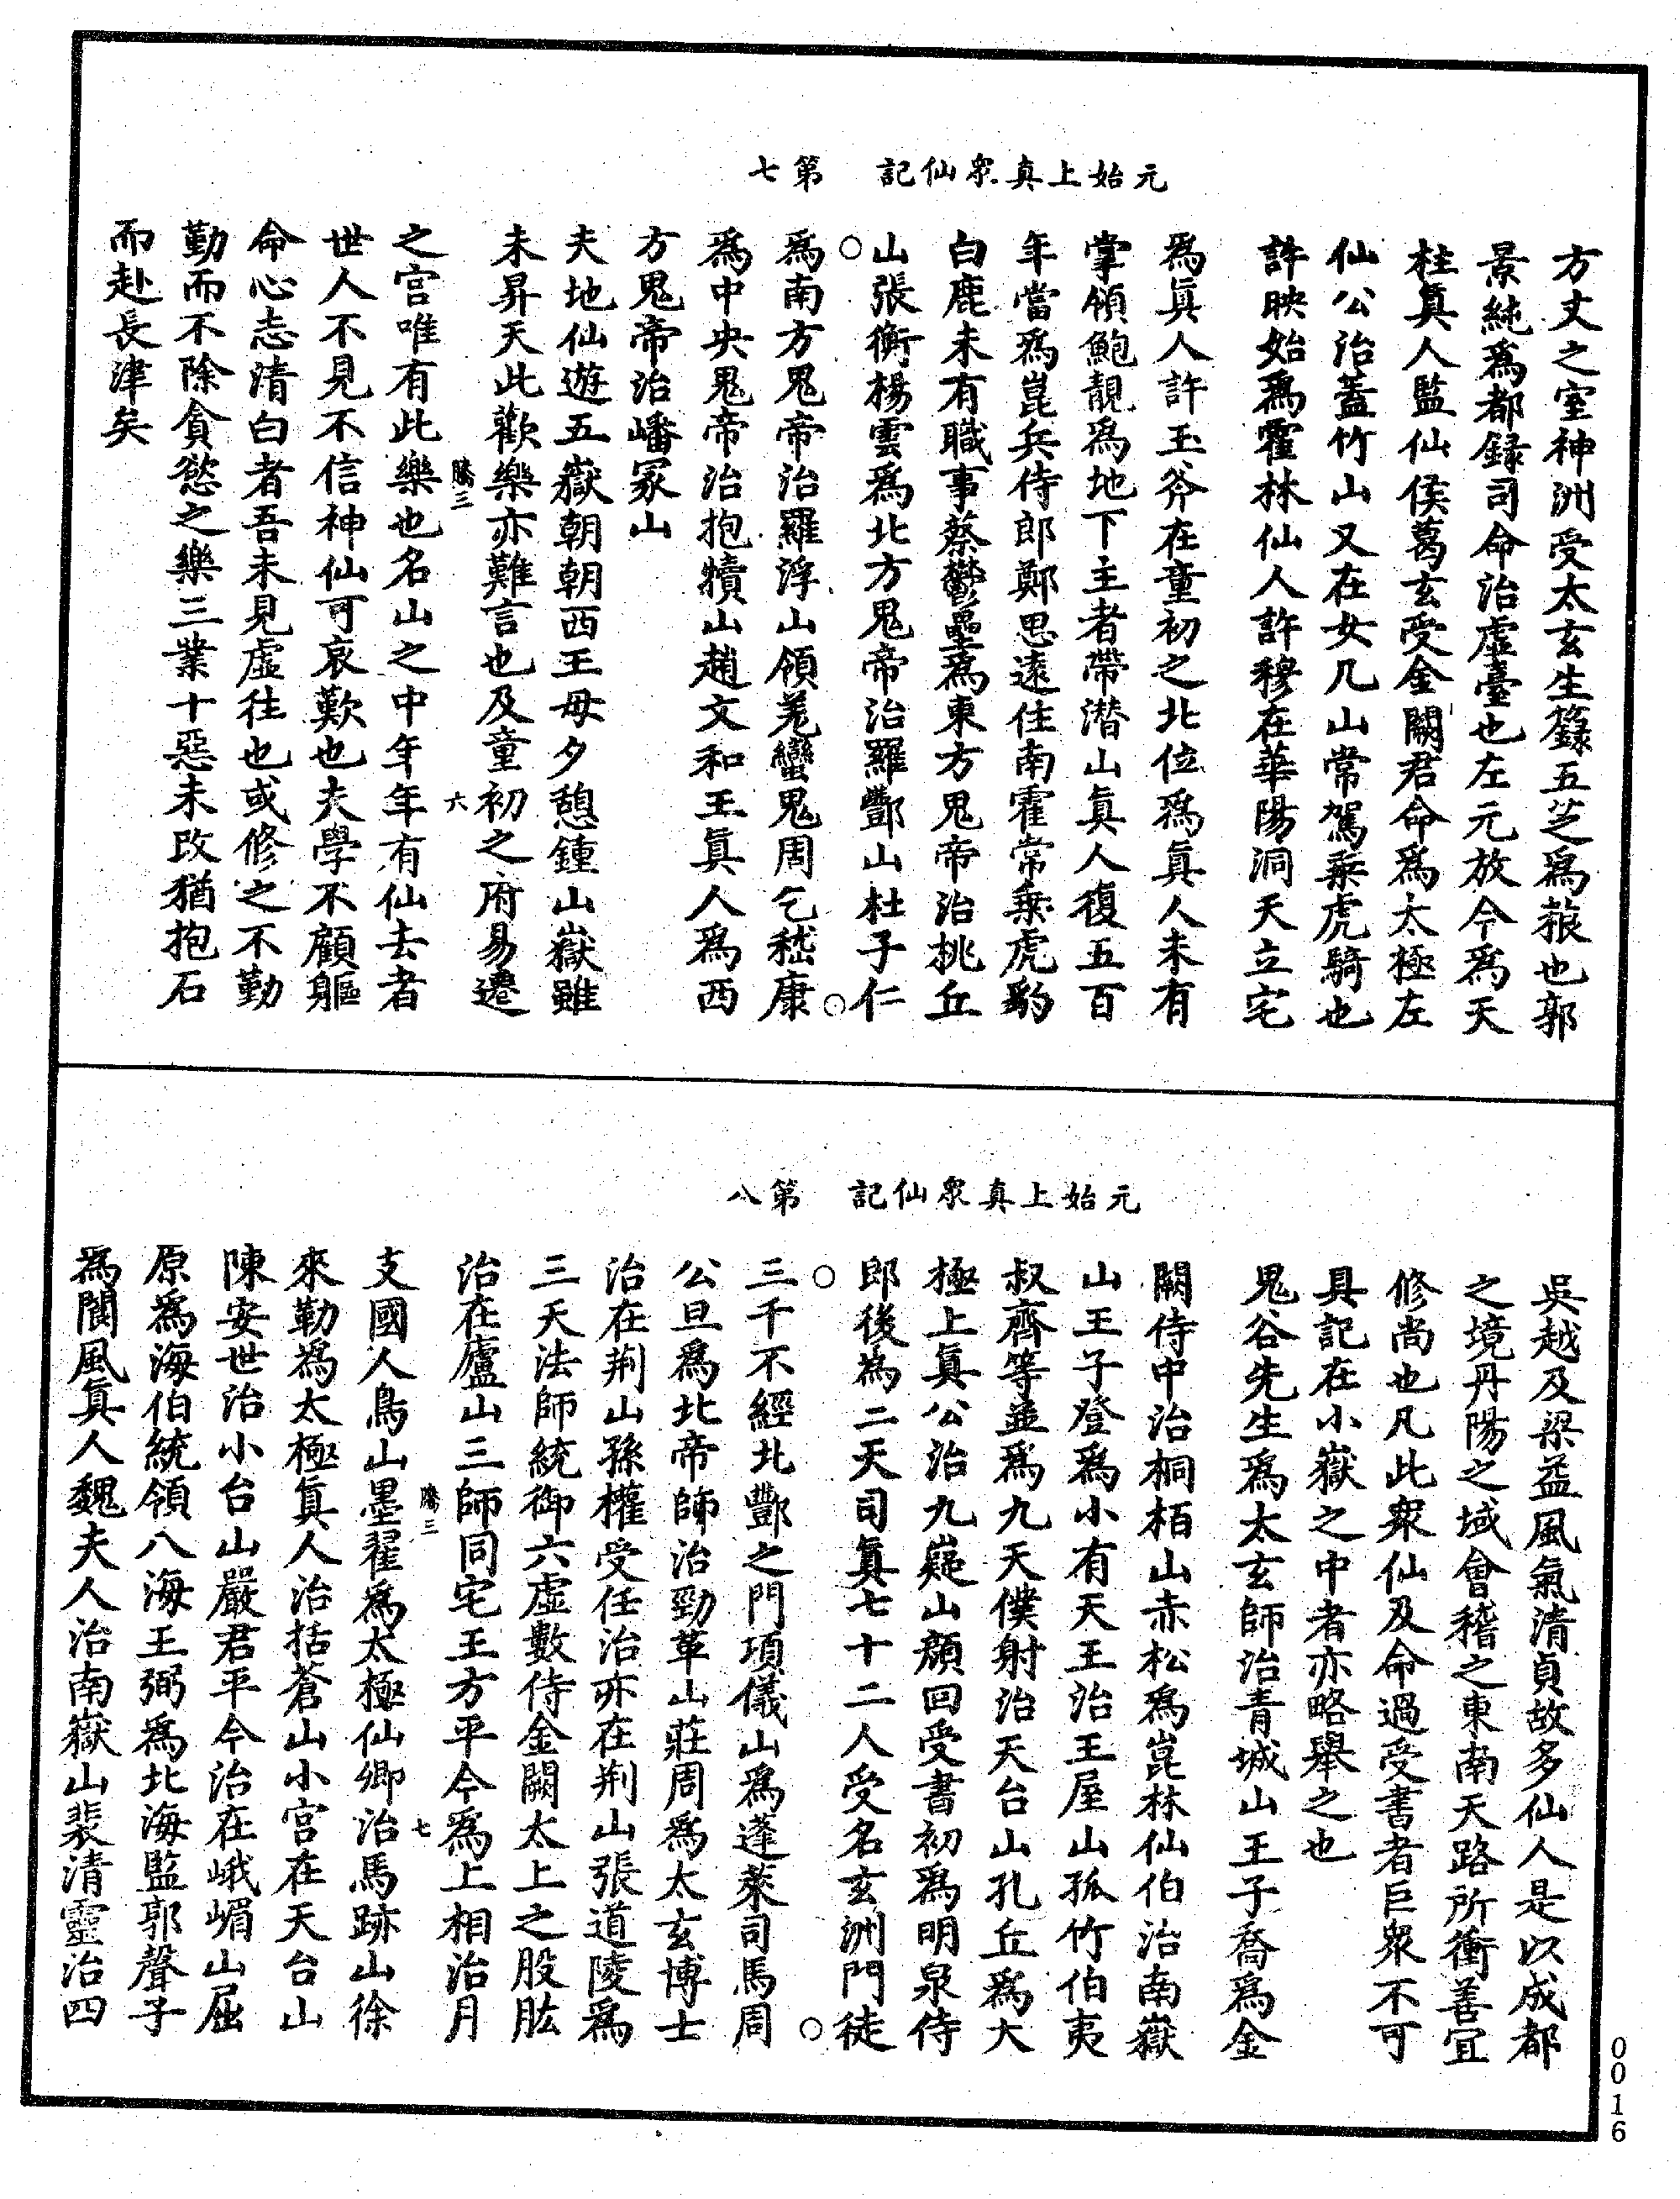 元始上真眾仙記　第七
方丈之室神洲受太玄生籙五芝為䅣也郭
景純為都録司命治虛臺也左元放今為天
柱真人監仙侯葛玄受金闕君命為太極左
仙公治蓋竹山又在女几山常駕乘虎騎也
許映始為霍林仙人許穆在華陽洞天立宅
為真人許玉斧在童初之北位為真人未有
掌領鮑靚為地下主者帶潛山真人復五百
年當為崑兵侍郎鄭思遠住南霍常乘虎豹
白鹿未有職事蔡鬱壘為東方鬼帝治桃丘
山張衡楊雲為北方鬼帝治羅酆山杜子仁
為南方鬼帝治羅浮山領羌蠻鬼周乞嵇康
為中央鬼帝治抱犢山趙文和王真人為西
方鬼帝治嶓冢山
夫地仙遊五嶽朝朝西王母夕憩鍾山嶽雖
未昇天此歡樂亦難言也及童初之府易遷
騰三　六
之宮唯有此樂也名山之中年年有仙去者
世人不見不信神仙可哀歎也夫學不顧軀
命心志清白者吾未見虛往也或修之不勤
勤而不除貪慾之樂三業十惡未改猶抱石
而赴長津矣
元始上真眾仙記　第八
吳越及梁益風氣清貞故多仙人是以成都
之境丹陽之域會稽之東南天路所衝善宜
修尚也凡此眾仙及命過受書者巨眾不可
具記在小嶽之中者亦略舉之也
鬼谷先生為太玄師治青城山王子喬為金
闕侍中治桐栢山赤松為崑林仙伯治南嶽
山王子登為小有天王治王屋山孤竹伯夷
叔齊等並為九天僕射治天台山孔丘為太
極上真公治九嶷山顏回受書初為明泉侍
郎後為二天司真七十二人受名玄洲門徒
三千不經北酆之門項儀山為蓬萊司馬周
公旦為北帝師治勁革山莊周為太玄博士
治在荆山孫權受任治亦在荆山張道陵為
三天法師統御六虛數侍金闕太上之股肱
治在廬山三師同宅王方平今為上相治月
騰三　七
支國人鳥山墨翟為太極仙卿治馬跡山徐
來勒為太極真人治括蒼山小宮在天台山
陳安世治小台山嚴君平今治在峨嵋山屈
原為海伯統領八海王弼為北海監郭聲子
為閬風真人魏夫人治南嶽山裴清靈治四
0016